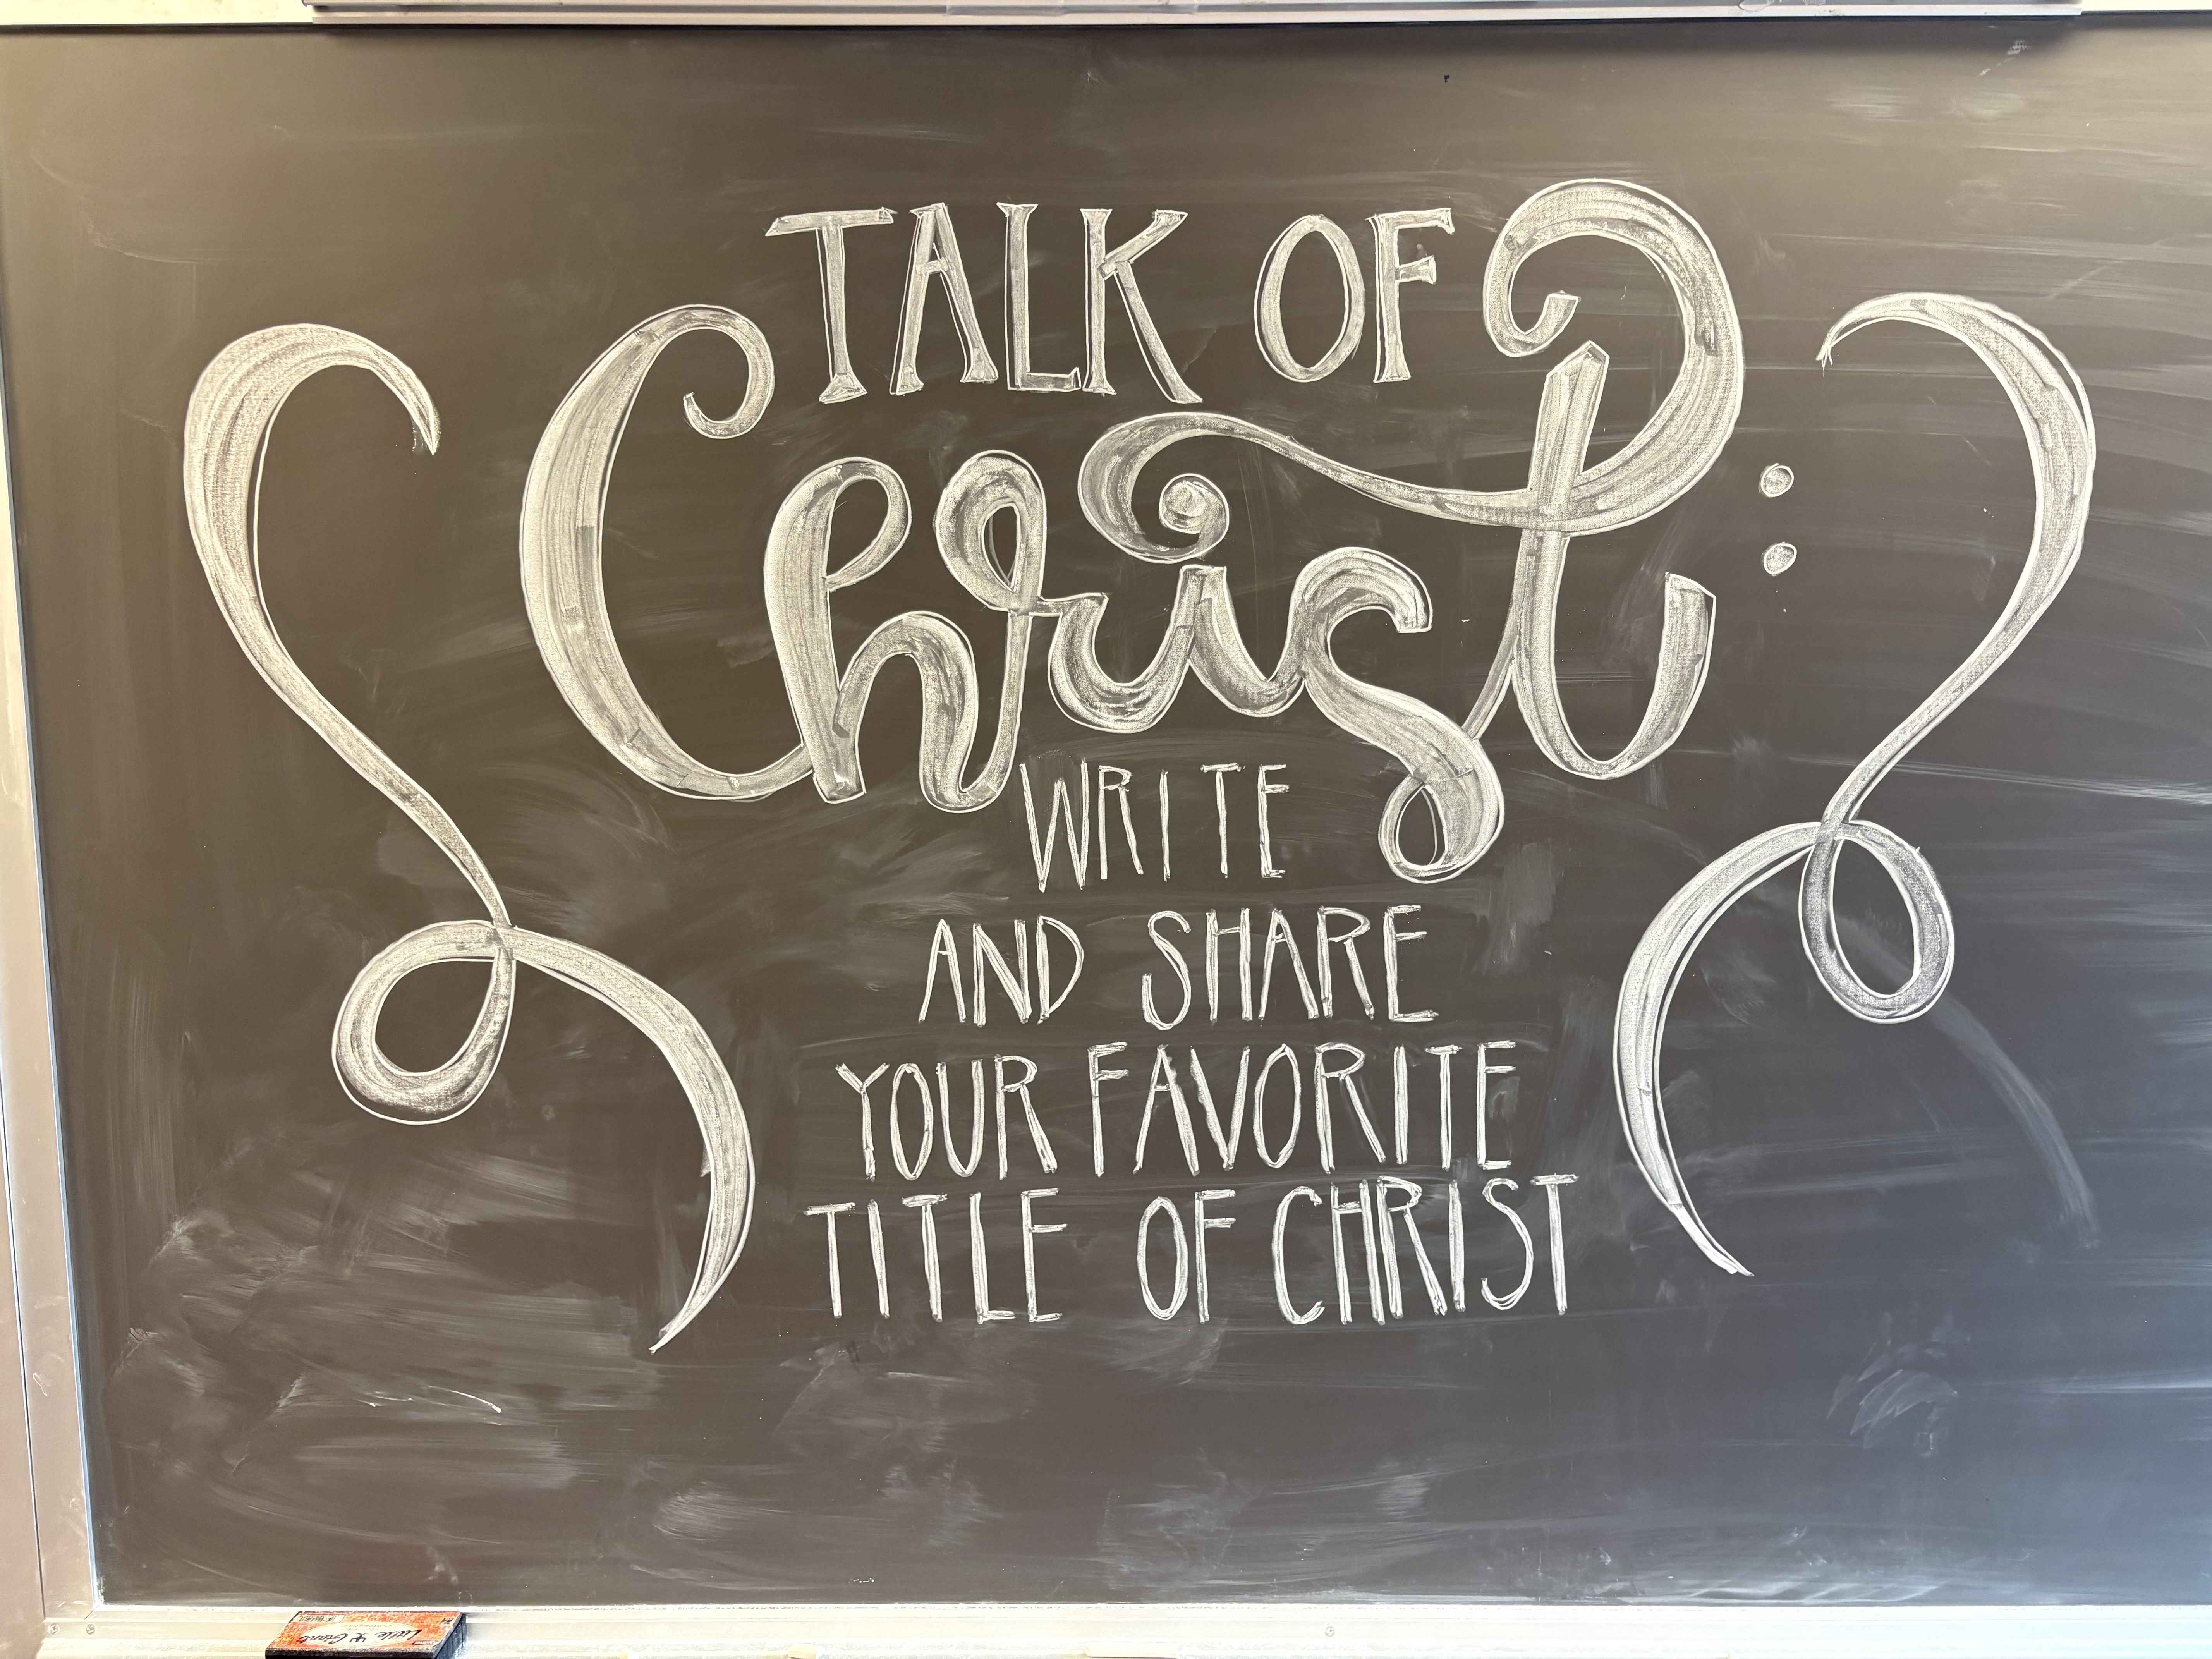 TALK OF
Christ:
WRITE
AND SHARE
YOUR FAVORITE
TITLE OF CHRIST
Little Giant